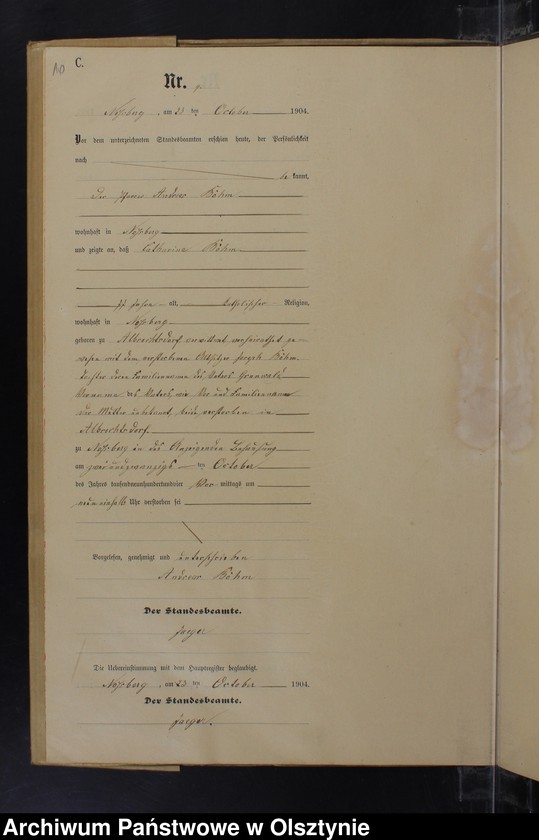 C.
Nr.
Noßberg, am 23 ten October 1904.
Vor dem unterzeichneten Standesbeamten erschien heute, der Persönlichkeit
nach
be kannt,
der Andreas Böhm
wohnhaft in Noßberg
und zeigte an, daß Catharina Böhm
77 Jahre alt, katholischer Religion,
wohnhaft in Noßberg
geboren zu Albrechtsdorf verheirathet ge-
wesen mit dem verstorbenen Joseph Böhm
Tochter deren Familienname des Vaters
Vorname des Vaters wie Vor und Familienname
der Mutter unbekannt, beide verstorben in
Albrechtsdorf
zu Noßberg in des Anzeigenden Behausung
am zweiundzwanzigs ten October
des Jahres tausendneunhundertundvier Vor mittags um
neun einhalb Uhr verstorben sei
Vorgelesen, genehmigt und unterschrieben
Andreas Böhm
Der Standesbeamte.
Jaeger
Die Uebereinstimmung mit dem Hauptregister beglaubigt.
Noßberg, am 23 ten October 1904.
Der Standesbeamte.
Jaeger.
Archiwum Państwowe w Olsztynie